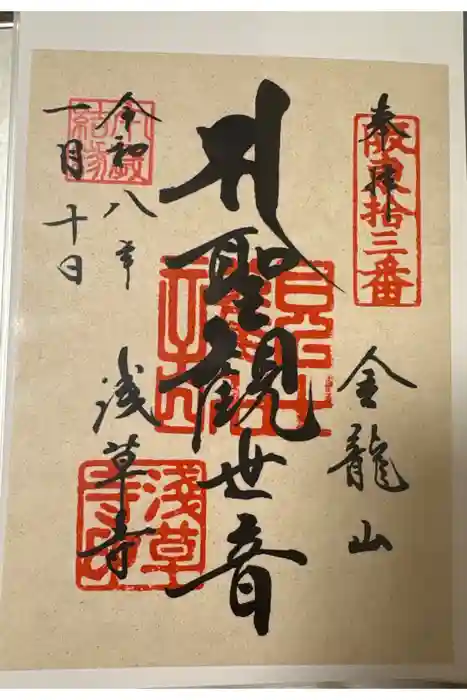 奉拝
坂東拾三番
金龍山
聖観世音
令和八年
一月十日
浅草寺
浅草寺印